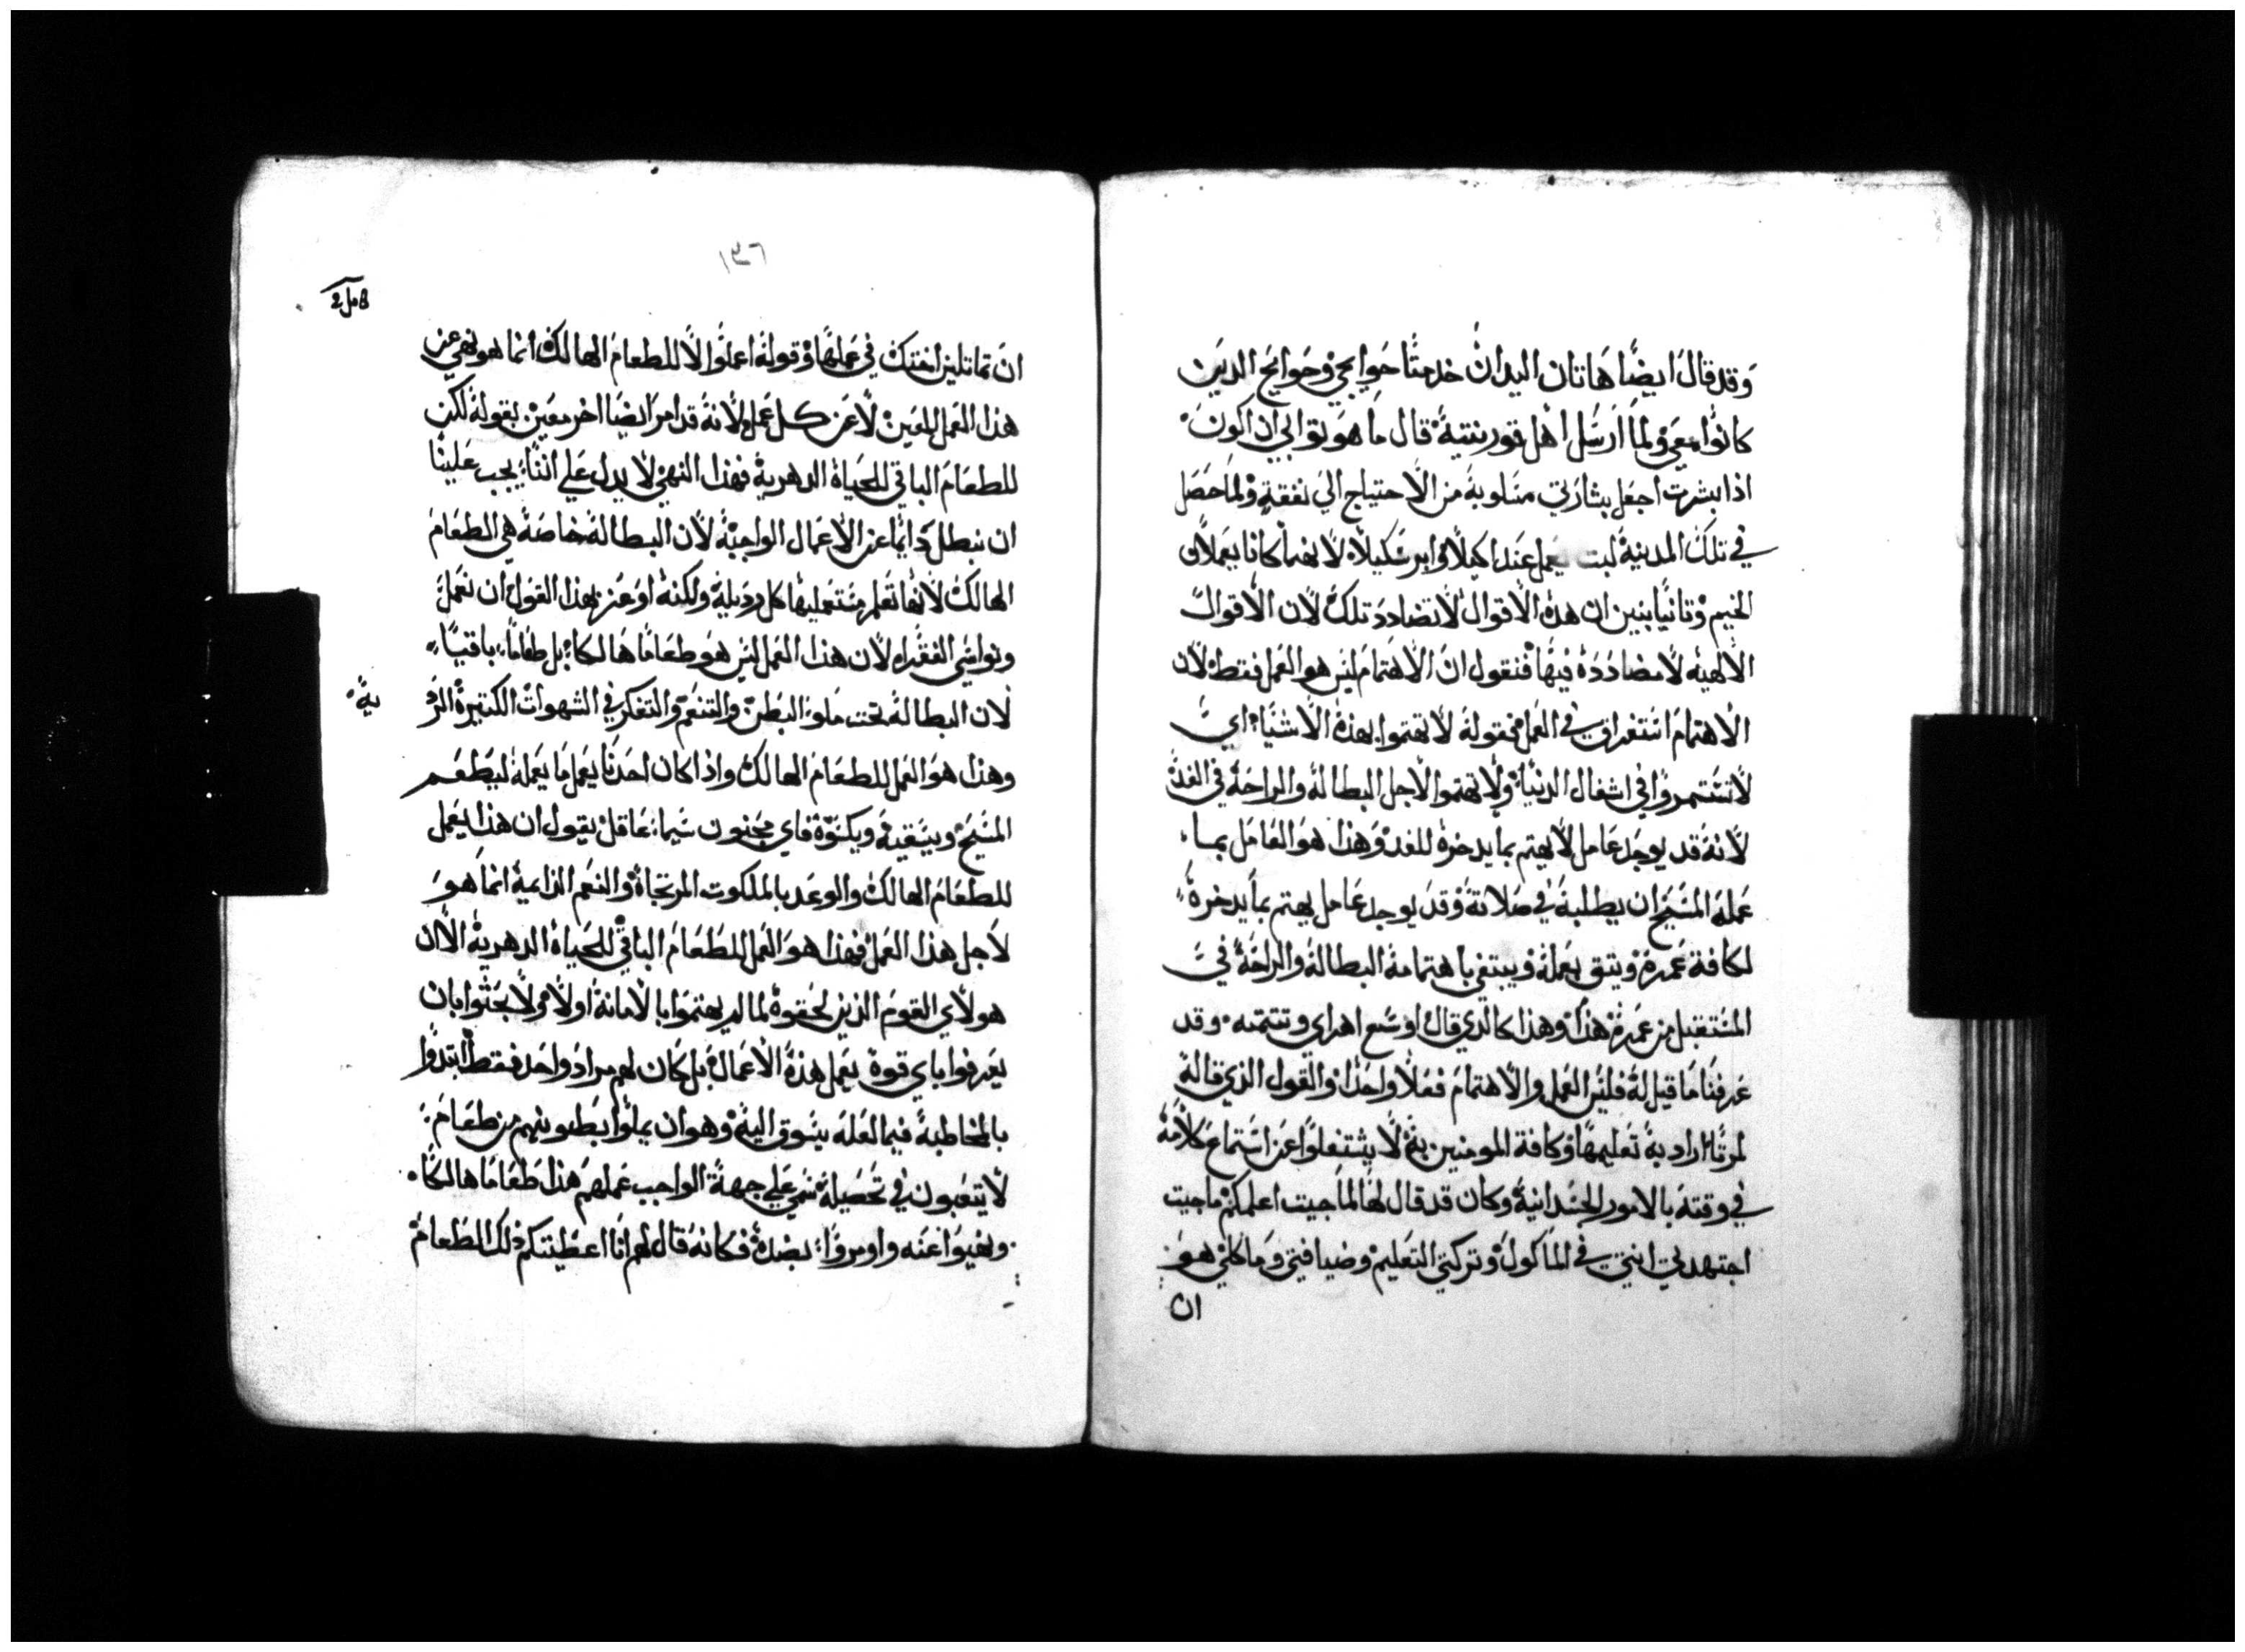 وقد قال ايضًا هاتان اليدان خدمتا حوايجي وحوايج الدين
كانوا معي ولما ارسل اهل قورنتية قال ما هو توابي ان اكون
اذا بشرت اجعل بشارتي مسلوبة من الاحتياج الي نفقة ولما حصل
في تلك المدينة لبت يعمل عند اكيلا وابرسكيلا لانهما كانا يعملان
الخيم وتانيا بنين ان هذه الاقوال لاتضادد تلك لان الاقوال
الالهيه لا مضاددة فيها فنقول ان الاهتمام ليس هو العمل فقط لان
الاهتمام استغراق في العمل فقوله لا تهتموا بهذه الاشيا اي
لاتستمروا في اشغال الدنيا ولا تهتموا لاجل البطالة والراحة في الغد
لانه قد يوجد عامل لا يهتم بما يدخره للغد وهذا هو العامل بما
عمله المسيح ان يطلبه في صلاته وقد يوجد عامل يهتم بما يدخره
لكافة عمره ويتق بعمله ويبتغي باهتمامه البطالة والراحة في
المستقبل من عمره هذا وهذا كالدي قال اوسع اهراي وتتمته وقد
عرفنا ما قيل له فليس العمل والاهتمام فعلا واحدا والقول الذي قاله
لمرتا اراد به تعليمها وكافة المومنين به لا يشتغلوا عن استماع كلامه
في وقته بالامور الجسدانية وكان قد قال لها لما جيت اعلمكم ما جيت
اجتهدتي انتي في الماكول وتركتي التعليم وضيافتي وما كلي هو
ان
١٣٦
ان تماتلين اختك في عملها وقوله اعملوا لا للطعام الهالك انما هو نهي عن
هذا العمل المعين لا عن كل عمل لانه قد امر ايضا اخر معين بقوله لكن
للطعام الباقي للحياة الدهرية فهذا النهي لا يدل علي اننا يجب علينا
ان نبطل دايما عن الاعمال الواجبة لان البطالة خاصة هي الطعام
الهالك لانها تعلم مستعمليها كل رديلة ولكنه اوعز بهذا القول ان نعمل
ونواسي الفقراء لان هذا العمل ليس هو طعاما هالكا بل طعاما باقيا
لان البطالة تحت ملوة البطن والتنعم والتفكر في الشهوات الكتيرة الرد
ية
وهذا هو العمل للطعام الهالك واذا كان احدنا يعمل ما يعمله ليطعم
المسيح ويسقيه ويكسوه فاي مجنون سيما عاقل يقول ان هذا يعمل
للطعام الهالك والوعد بالملكوت المرتجاة والنعم الدايمة انما هو
لاجل هذا العمل فهذا هو العمل للطعام الباقي للحياة الدهرية الا ان
هولاي القوم الذين لحقوه لما لم يهتموا بالامانة اولا ولا بحثوا بان
يعرفوا باي قوة يعمل هذه الاعمال بل كان لهم مراد واحد فقط ابتدوا
بالمخاطبة فيما لعله يسوق اليه وهو ان يملوا بطونهم من طعام
لا يتعبون في تحصيله سمي علي جهة الواجب عملهم هذا طعاما هالكا
ونهيوا عنه واومروا بضده فكانه قال لهم انا اعطيتكم ذلك الطعام